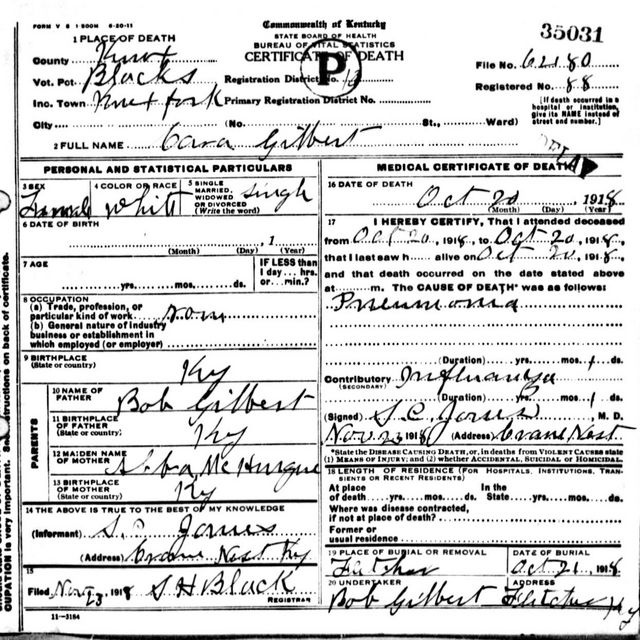 FORM V S 1-500M 6-20-11
Commonwealth of Kentucky
35031
STATE BOARD OF HEALTH
BUREAU OF VITAL STATISTICS
CERTIFICATE OF DEATH
1 PLACE OF DEATH
County Knox
Vot. Pct. Blacks
Registration District No. 16
File No. 62180
Inc. Town Knox fork Primary Registration District No.
Registered No. 88
P
City (No. St., Ward)
[If death occurred in a hospital or institution, give its NAME instead of street and number.]
2 FULL NAME Cara Gilbert
PERSONAL AND STATISTICAL PARTICULARS
3 SEX Female
4 COLOR OR RACE Whitt
5 SINGLE MARRIED, WIDOWED OR DIVORCED (Write the word) Singh
6 DATE OF BIRTH
, 1
(Month) (Day) (Year)
7 AGE
yrs. mos. ds.
IF LESS than 1 day... hrs. or... min.?
8 OCCUPATION
(a) Trade, profession, or particular kind of work
(b) General nature of industry
business or establishment in
which employed (or employer)
9 BIRTHPLACE
(State or country) Ky
PARENTS
10 NAME OF FATHER Bob Gilbert
11 BIRTHPLACE OF FATHER (State or country) Ky
12 MAIDEN NAME OF MOTHER
13 BIRTHPLACE OF MOTHER Ky
14 THE ABOVE IS TRUE TO THE BEST OF MY KNOWLEDGE
(Informant) S. C. Jones
(Address) Crane Nest Ky
15
Filed Nov 23 1918 S H Black
REGISTRAR
11-3184
MEDICAL CERTIFICATE OF DEATH
16 DATE OF DEATH
Oct 20 1918
(Month) (Day) (Year)
17 I HEREBY CERTIFY, That I attended deceased
from Oct 20, 1918, to Oct 20, 1918,
that I last saw h alive on Oct 20, 1918,
and that death occurred on the date stated above
at m. The CAUSE OF DEATH* was as follows:
Pneumonia
(Duration) yrs. mos. 1 ds.
Contributory Influanza
(SECONDARY)
(Duration) yrs. mos. 1 ds.
(Signed) S. C. Jones, M. D.
Nov 23 1918 (Address) Crane Nest
*State the DISEASE CAUSING DEATH, or, in deaths from VIOLENT CAUSES state
(1) MEANS OF INJURY; and (2) whether ACCIDENTAL, SUICIDAL or HOMICIDAL.
18 LENGTH OF RESIDENCE (FOR HOSPITALS, INSTITUTIONS, TRANSIENTS OR RECENT RESIDENTS)
At place of death yrs. mos. ds. In the State yrs. mos. ds.
Where was disease contracted,
if not at place of death?
Former or
usual residence
19 PLACE OF BURIAL OR REMOVAL Fletcher
DATE OF BURIAL Oct 21, 1918
20 UNDERTAKER Bob Gilbert
ADDRESS Fletcher Ky
CUPATION is very important. See instructions on back of certificate.